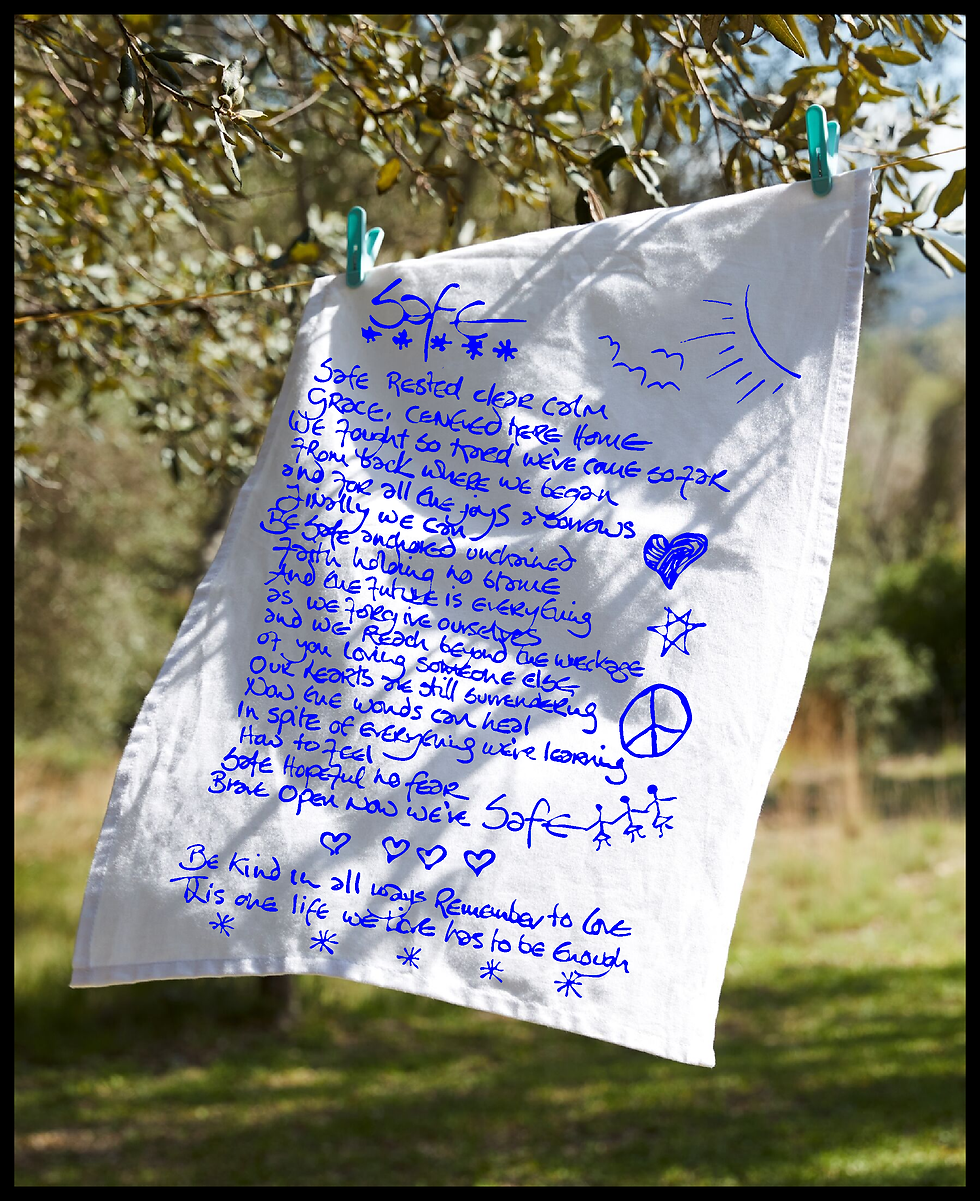 Safe
Safe Rested clear calm
Grace, centred here Home
We fought so hard we've come so far
From back where we began
and for all the joys & sorrows
Finally we can
Be safe anchored unchained
Faith holding no blame
And the Future is everything
as we forgive ourselves
and we Reach beyond the wreckage
of you loving someone else
Our hearts are still surrendering
Now the words can heal
In spite of everything we're learning
How to Feel
Safe Hopeful no fear
Brave Open Now we're Safe
Be kind in all ways Remember to love
This one life we live has to be Enough